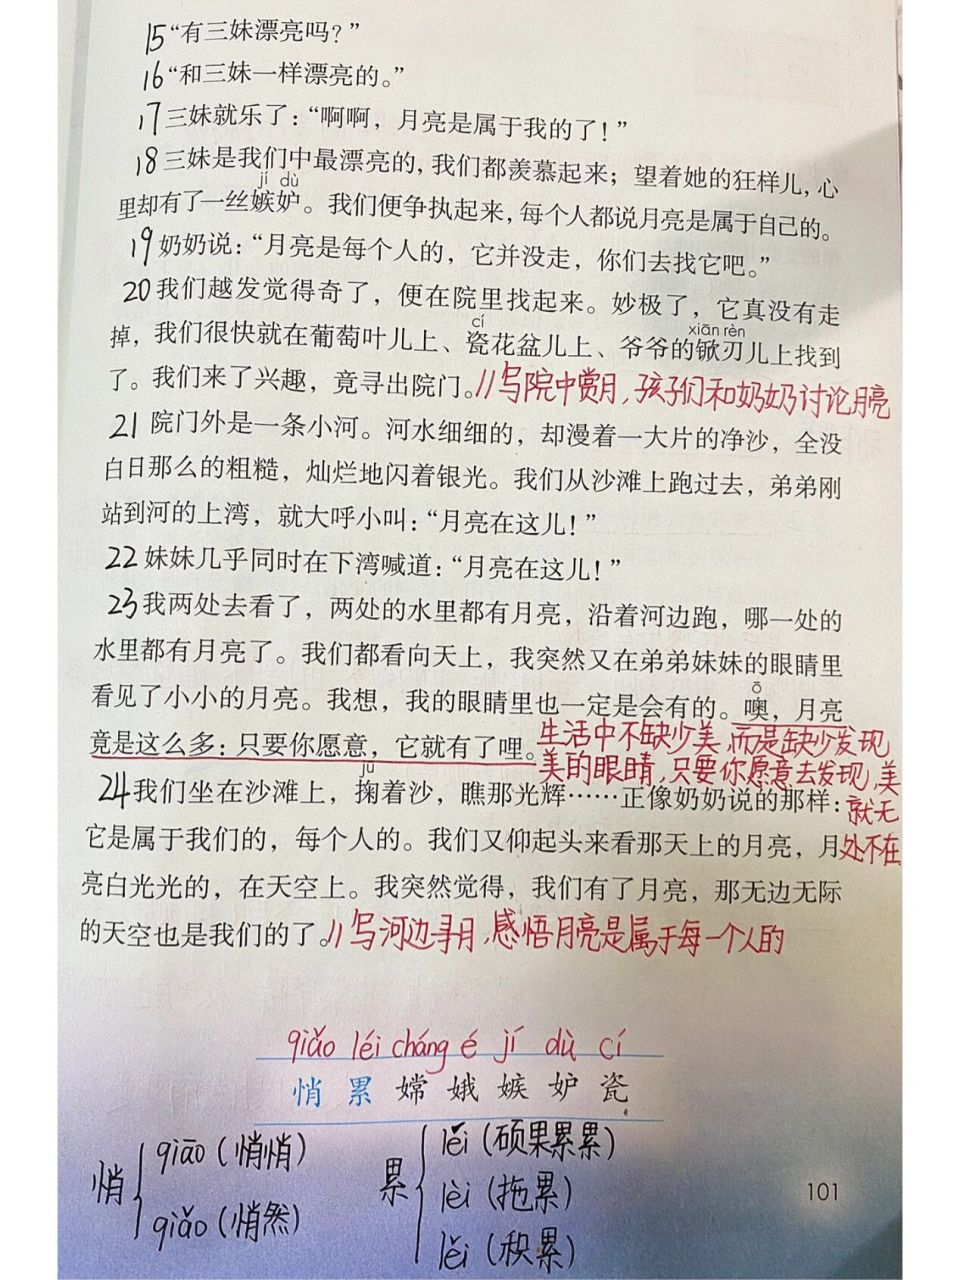 15“有三妹漂亮吗？”
16“和三妹一样漂亮的。”
17三妹就乐了：“啊啊，月亮是属于我的了！”
18三妹是我们中最漂亮的，我们都羡慕起来；望着她的狂样儿，心
jí dù
里却有了一丝嫉妒。我们便争执起来，每个人都说月亮是属于自己的。
19奶奶说：“月亮是每个人的，它并没走，你们去找它吧。”
20我们越发觉得奇了，便在院里找起来。妙极了，它真没有走
cí xiān rèn
掉，我们很快就在葡萄叶儿上、瓷花盆儿上、爷爷的锨刃儿上找到
了。我们来了兴趣，竟寻出院门。//写院中赏月，孩子们和奶奶讨论月亮
21 院门外是一条小河。河水细细的，却漫着一大片的净沙，全没
白日那么的粗糙，灿烂地闪着银光。我们从沙滩上跑过去，弟弟刚
站到河的上湾，就大呼小叫：“月亮在这儿！”
22妹妹几乎同时在下湾喊道：“月亮在这儿！”
23我两处去看了，两处的水里都有月亮，沿着河边跑，哪一处的
水里都有月亮了。我们都看向天上，我突然又在弟弟妹妹的眼睛里
ō
看见了小小的月亮。我想，我的眼睛里也一定是会有的。噢，月亮
竟是这么多：只要你愿意，它就有了哩。生活中不缺少美，而是缺少发现
美的眼睛，只要你愿意去发现，美
jū
24我们坐在沙滩上，掬着沙，瞧那光辉……正像奶奶说的那样：就无
它是属于我们的，每个人的。我们又仰起头来看那天上的月亮，月处不在
亮白光光的，在天空上。我突然觉得，我们有了月亮，那无边无际
的天空也是我们的了。//写河边寻月，感悟月亮是属于每一个人的
qiǎo léi cháng é jí dù cí
悄 累 嫦 娥 嫉 妒 瓷
悄 qiāo（悄悄）
qiǎo（悄然）
累 léi（硕果累累）
lèi（拖累）
lěi（积累）
101